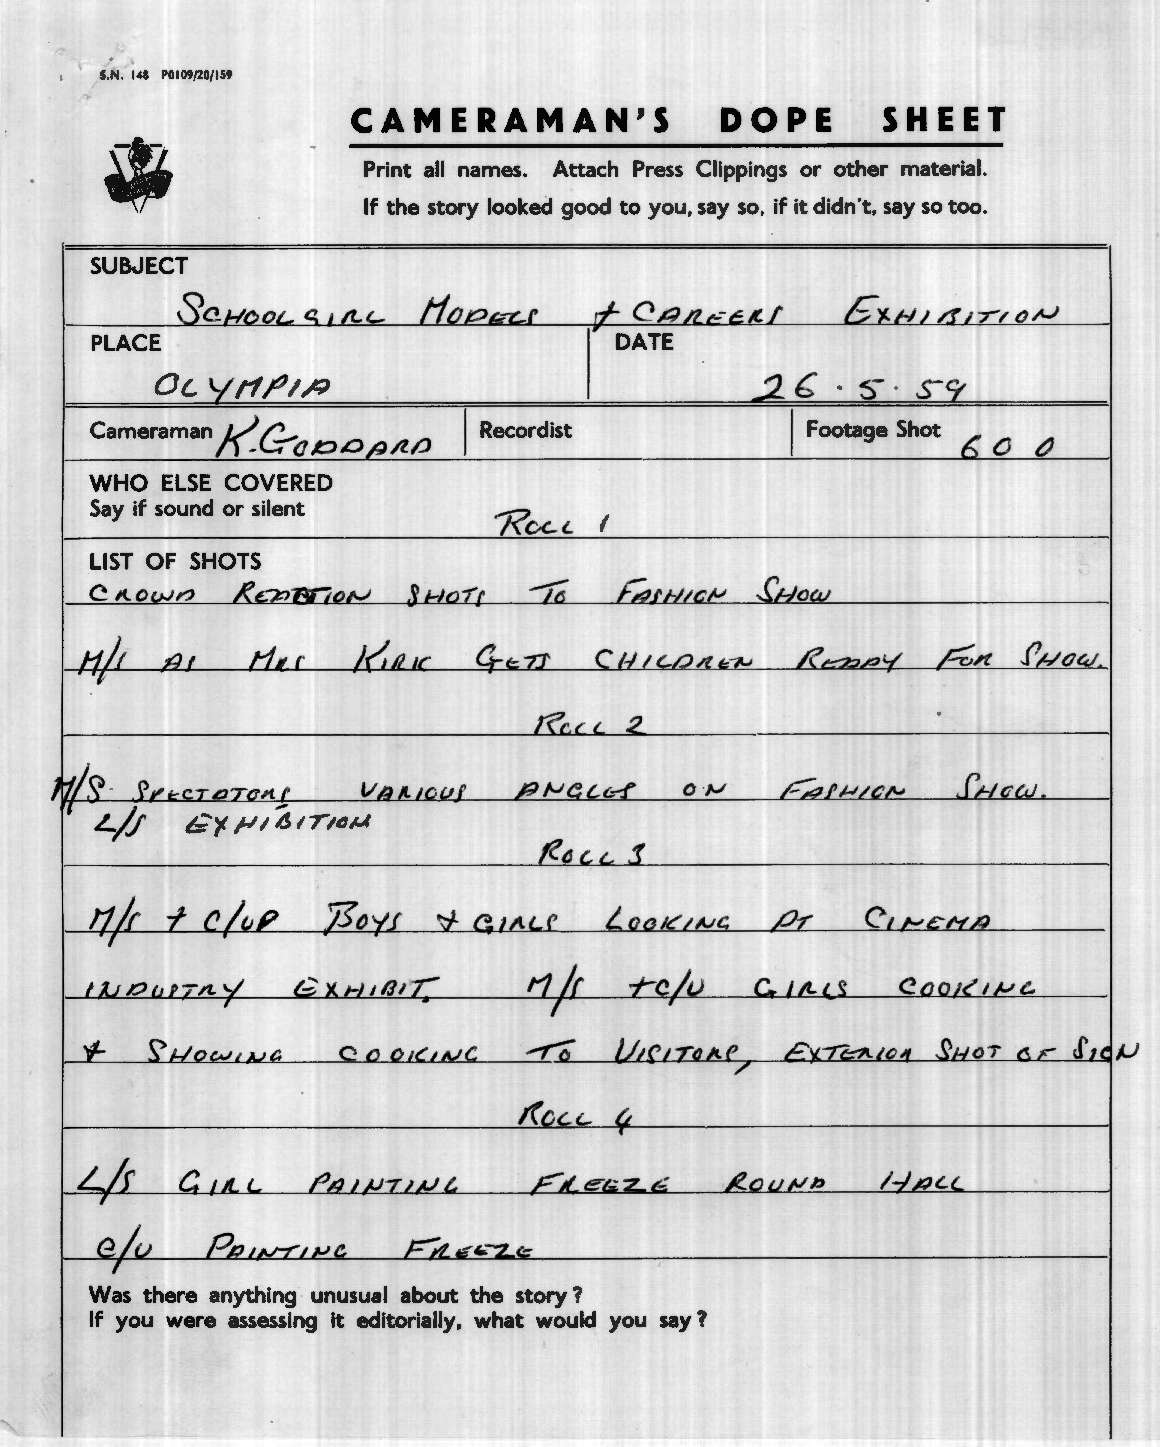 S.N. 148 P0109/20/159
CAMERAMAN'S DOPE SHEET
Print all names. Attach Press Clippings or other material.
If the story looked good to you, say so, if it didn't, say so too.
SUBJECT
SCHOOLGIRL MODELS + CAREERS EXHIBITION
PLACE
OLYMPIA
DATE
26.5.59
Cameraman K. GODDARD
Recordist
Footage Shot 600
WHO ELSE COVERED
Say if sound or silent
ROLL 1
LIST OF SHOTS
CROWD REACTION SHOTS TO FASHION SHOW
M/S AS MRS KIRK GETS CHILDREN READY FOR SHOW.
ROLL 2
M/S SPECTATORS VARIOUS ANGLES ON FASHION SHOW.
L/S EXHIBITION
ROLL 3
M/S + C/UP BOYS + GIRLS LOOKING AT CINEMA
INDUSTRY EXHIBIT. M/S + C/U GIRLS COOKING
+ SHOWING COOKING TO VISITORS, EXTERIOR SHOT OF SIGN
ROLL 4
L/S GIRL PAINTING FREEZE ROUND HALL
C/U PAINTING FREEZE
Was there anything unusual about the story?
If you were assessing it editorially, what would you say?